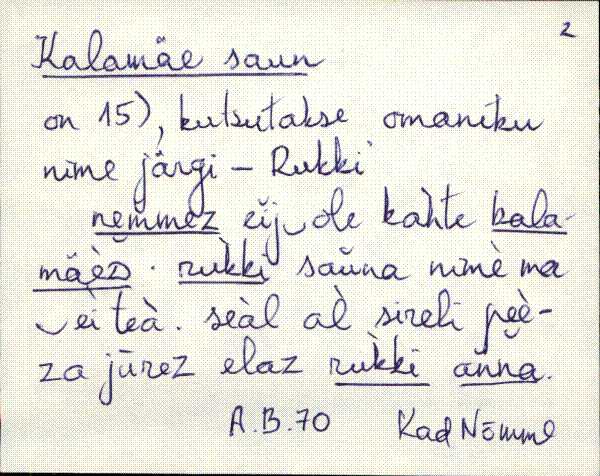 2
Kalamäe saun
on 15), kutsutakse omaniku
nime järgi – Rukki
nemmez eij ole kahte kala-
mäèz. rùkki saùna nimè ma
èi teà. seàl al sireli pèè-
za jūrez elaz rùkki anna.
A.B.70 Kad Nõmme